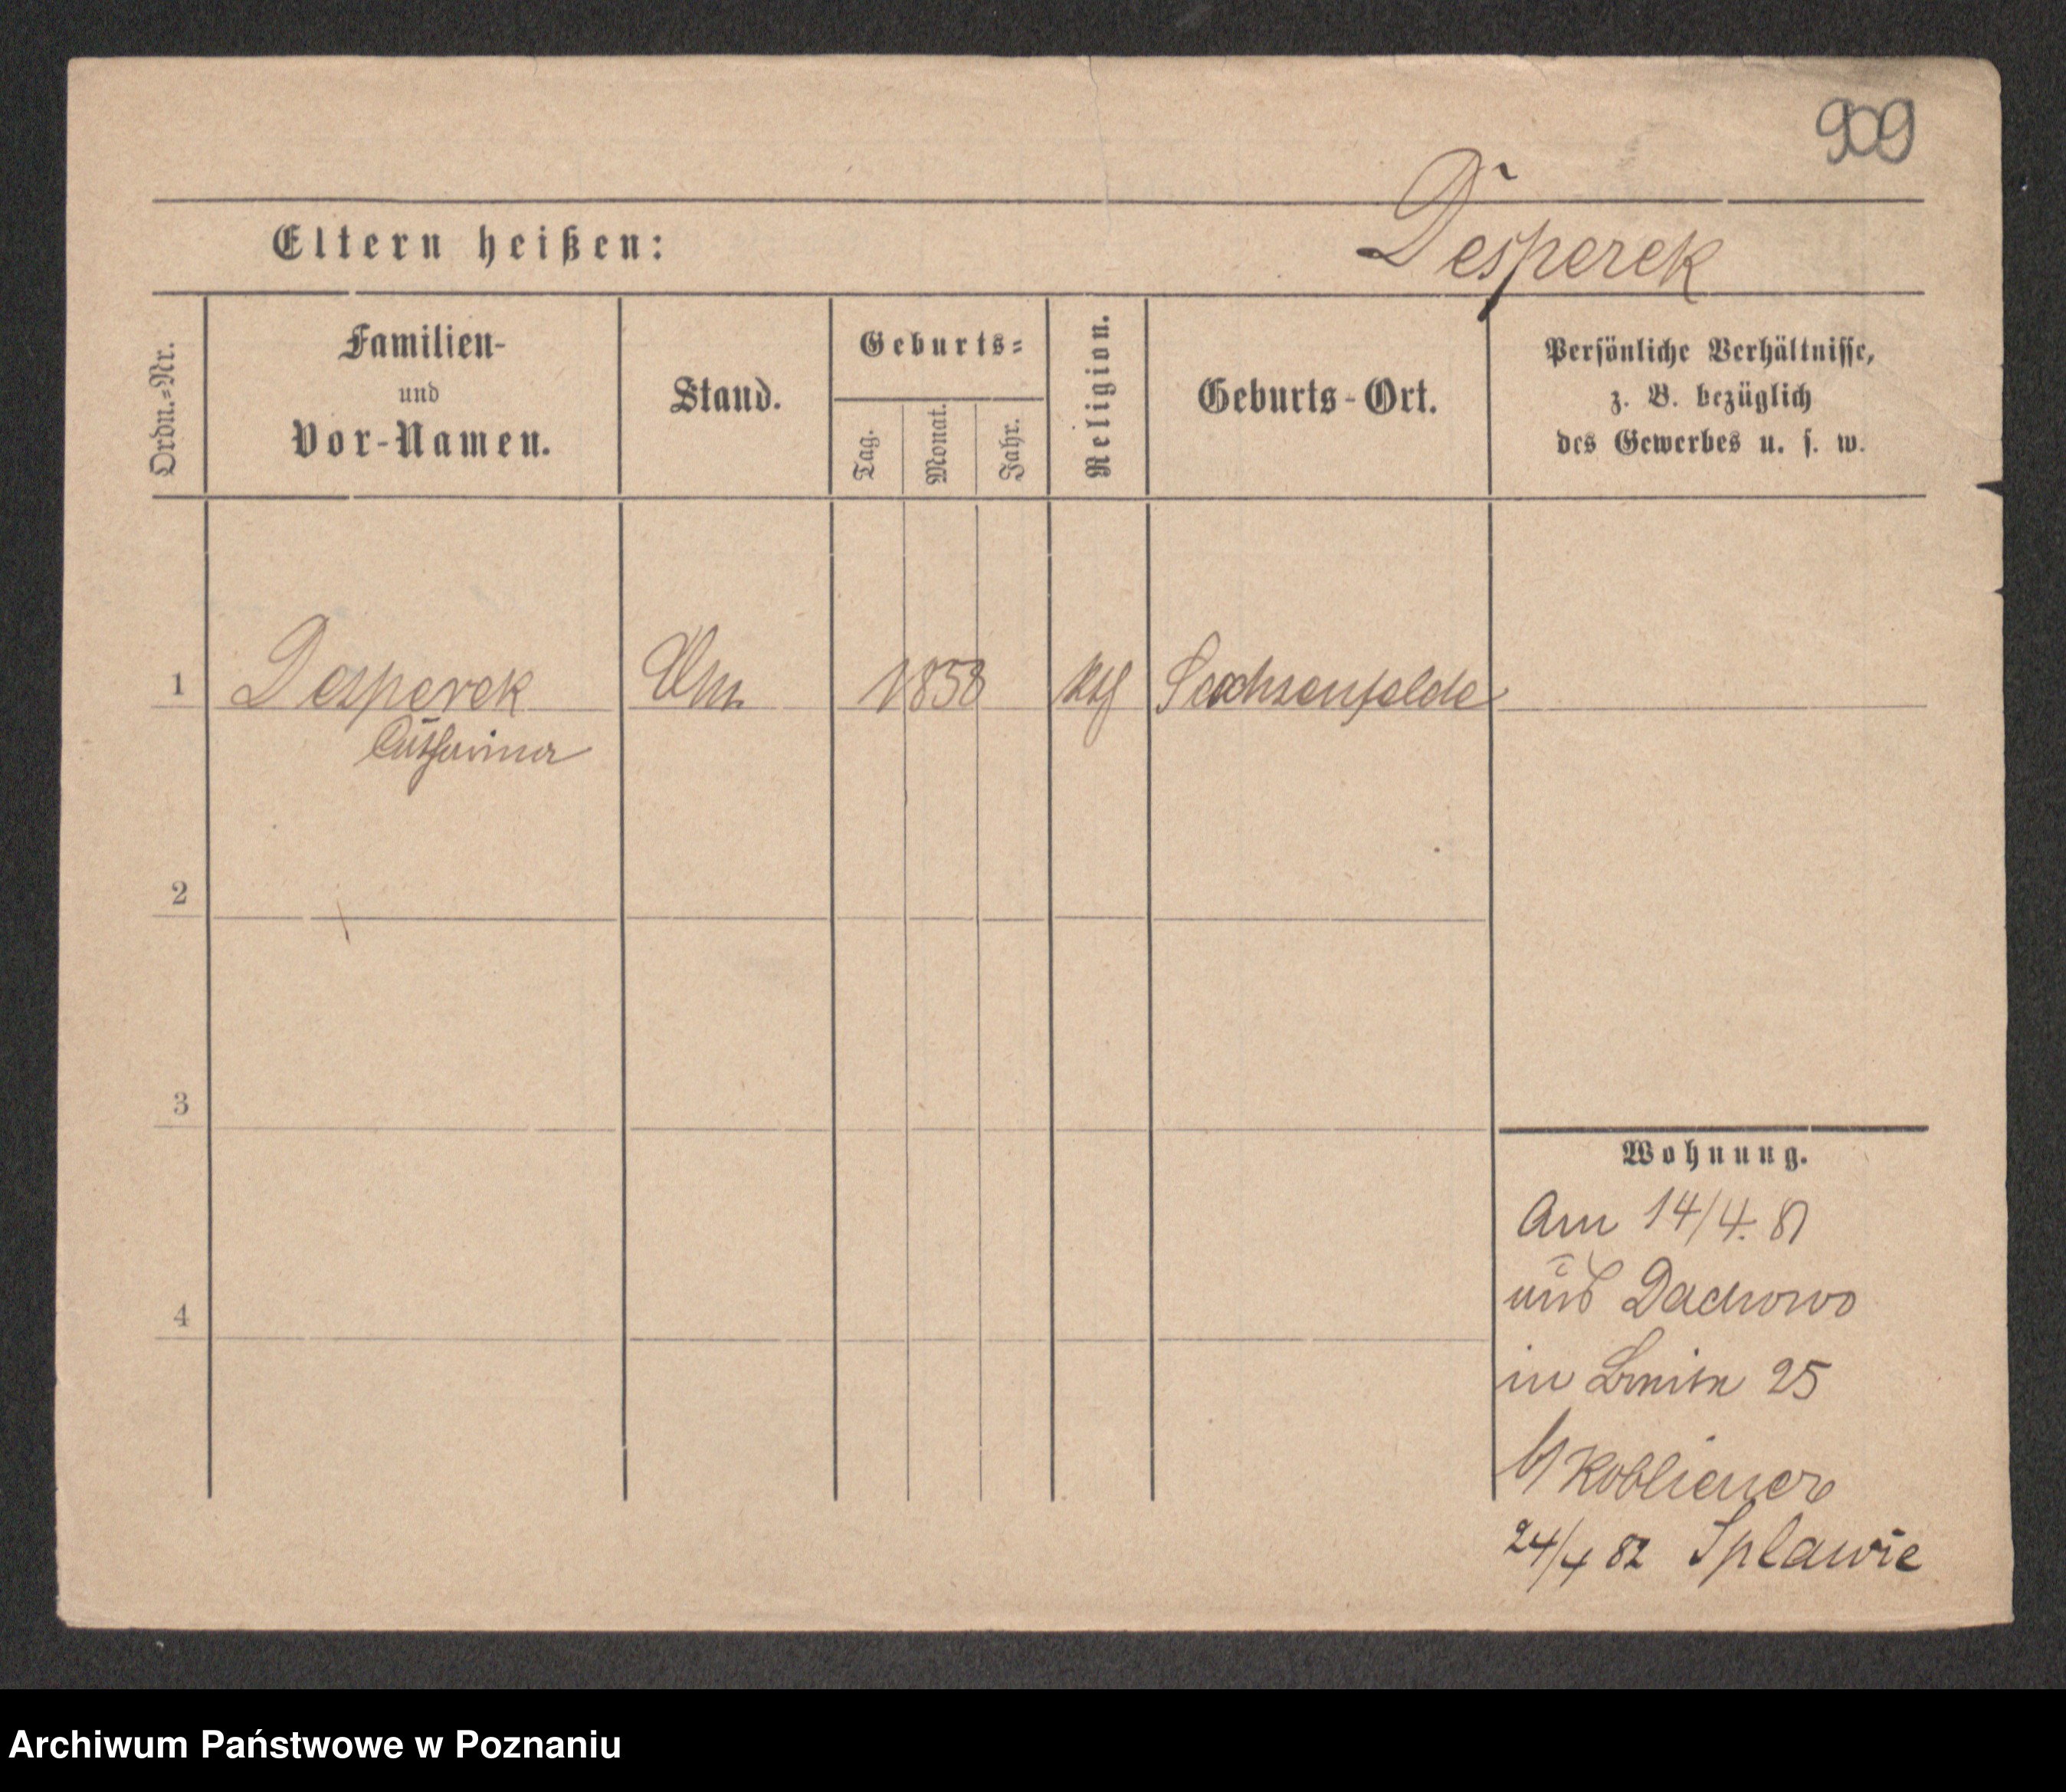 909
Eltern heißen:
Desperek
Ordn.=Nr.
Familien-
und
Vor-Namen.
Stand.
Geburts=
Tag.
Monat.
Jahr.
Religion.
Geburts-Ort.
Persönliche Verhältnisse,
z. B. bezüglich
des Gewerbes u. s. w.
1
Desperek
1858
kth
Sachsenfelde
Catharina
2
3
4
Wohnung.
Am 14/4. 81
aus Dachowo
in 25
24/4 82 Splawie
Archiwum Państwowe w Poznaniu